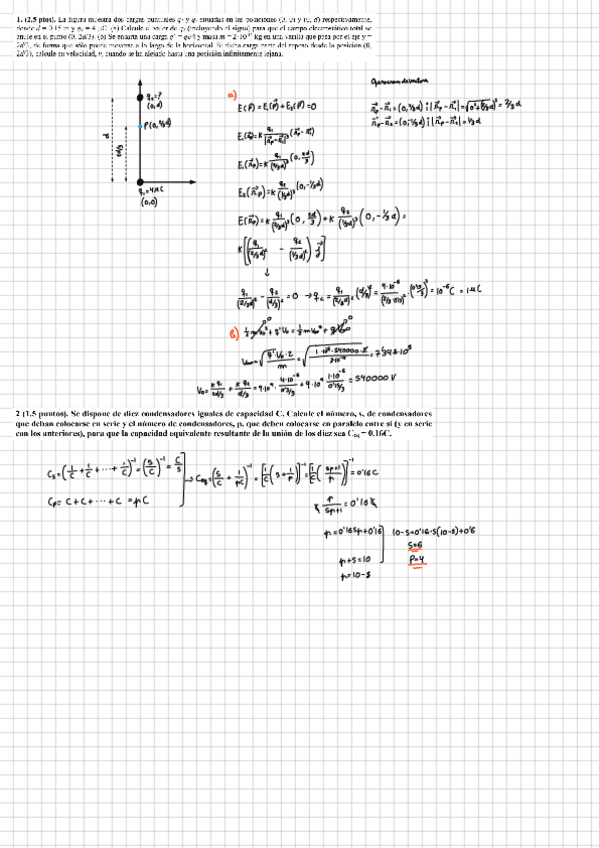 1. (2.5 ptos). La figura muestra dos cargas puntuales q₁ y q₂ situadas en las posiciones (0, 0) y (0, d) respectivamente,
donde d = 0.15 m y q₁ = 4 μC. (a) Calcule el valor de q₂ (incluyendo el signo) para que el campo electrostático total se
anule en el punto (0, 2d/3). (b) Se ensarta una carga q' = q₁/4 y masa m = 2·10 kg en una varilla que pasa por el eje y =
2d/3, de forma que sólo puede moverse a lo largo de la horizontal. Si dicha carga parte del reposo desde la posición (0,
2d/3), calcule su velocidad, v, cuando se ha alejado hasta una posición infinitamente lejana.
q₂=?
(0,d)
P(0,2/3d)
d
2d/3
q₁=4μC
(0,0)
a)
E(P)=E₁(P)+E₂(P)=0
E₁(rp)=K q₁/|rp-r₁|³ (rp-r₁)
E₁(rp)=K q₁/(2/3d)³ (0, 2d/3)
E₂(rp)=K q₂/(1/3d)³ (0,-1/3d)
E(rp)=K q₁/(2/3d)³ (0, 2d/3)+K q₂/(1/3d)³ (0,-1/3d)=
K[(q₁/(2/3d)² - q₂/(1/3d)²) j]
↓
q₁/(2/3d)² - q₂/(d/3)² =0 → q₂= q₁/(2/3d)² (d/3)² = 4·10⁻⁶/(2/3·0'15)² · (0'15/3)² = 10⁻⁶C = 1μC
rp-r₁=(0,2/3d); |rp-r₁|=√(0²+(2/3d)²)=2/3d
rp-r₂=(0,-1/3d); |rp-r₂|=1/3d
b) 1/2mv₀²+q'V₀=1/2mv∞²+q'V∞
v∞=√(q'·V₀·2/m)=
V₀= K q₁/(2d/3) + K q₂/(d/3) =9·10⁹· 4·10⁻⁶/(0'3/3) + 9·10⁹ 1·10⁻⁶/(0'15/3) = 540000 V
2 (1.5 puntos). Se dispone de diez condensadores iguales de capacidad C. Calcule el número, s, de condensadores
que deban colocarse en serie y el número de condensadores, p, que deben colocarse en paralelo entre sí (y en serie
con los anteriores), para que la capacidad equivalente resultante de la unión de los diez sea Ceq = 0.16C.
Cs=(1/C+1/C+···+1/C)⁻¹=(s/C)⁻¹=C/s
Cp=C+C+···+C=pC
→ Ceq=(s/C+1/pC)⁻¹=[1/C(s+1/p)]⁻¹=[1/C(sp+1/p)]⁻¹=0'16C
C p/(sp+1)=0'16C
p=0'16sp+0'16
p+s=10
p=10-s
10-s=0'16·s(10-s)+0'16
s=6
p=4